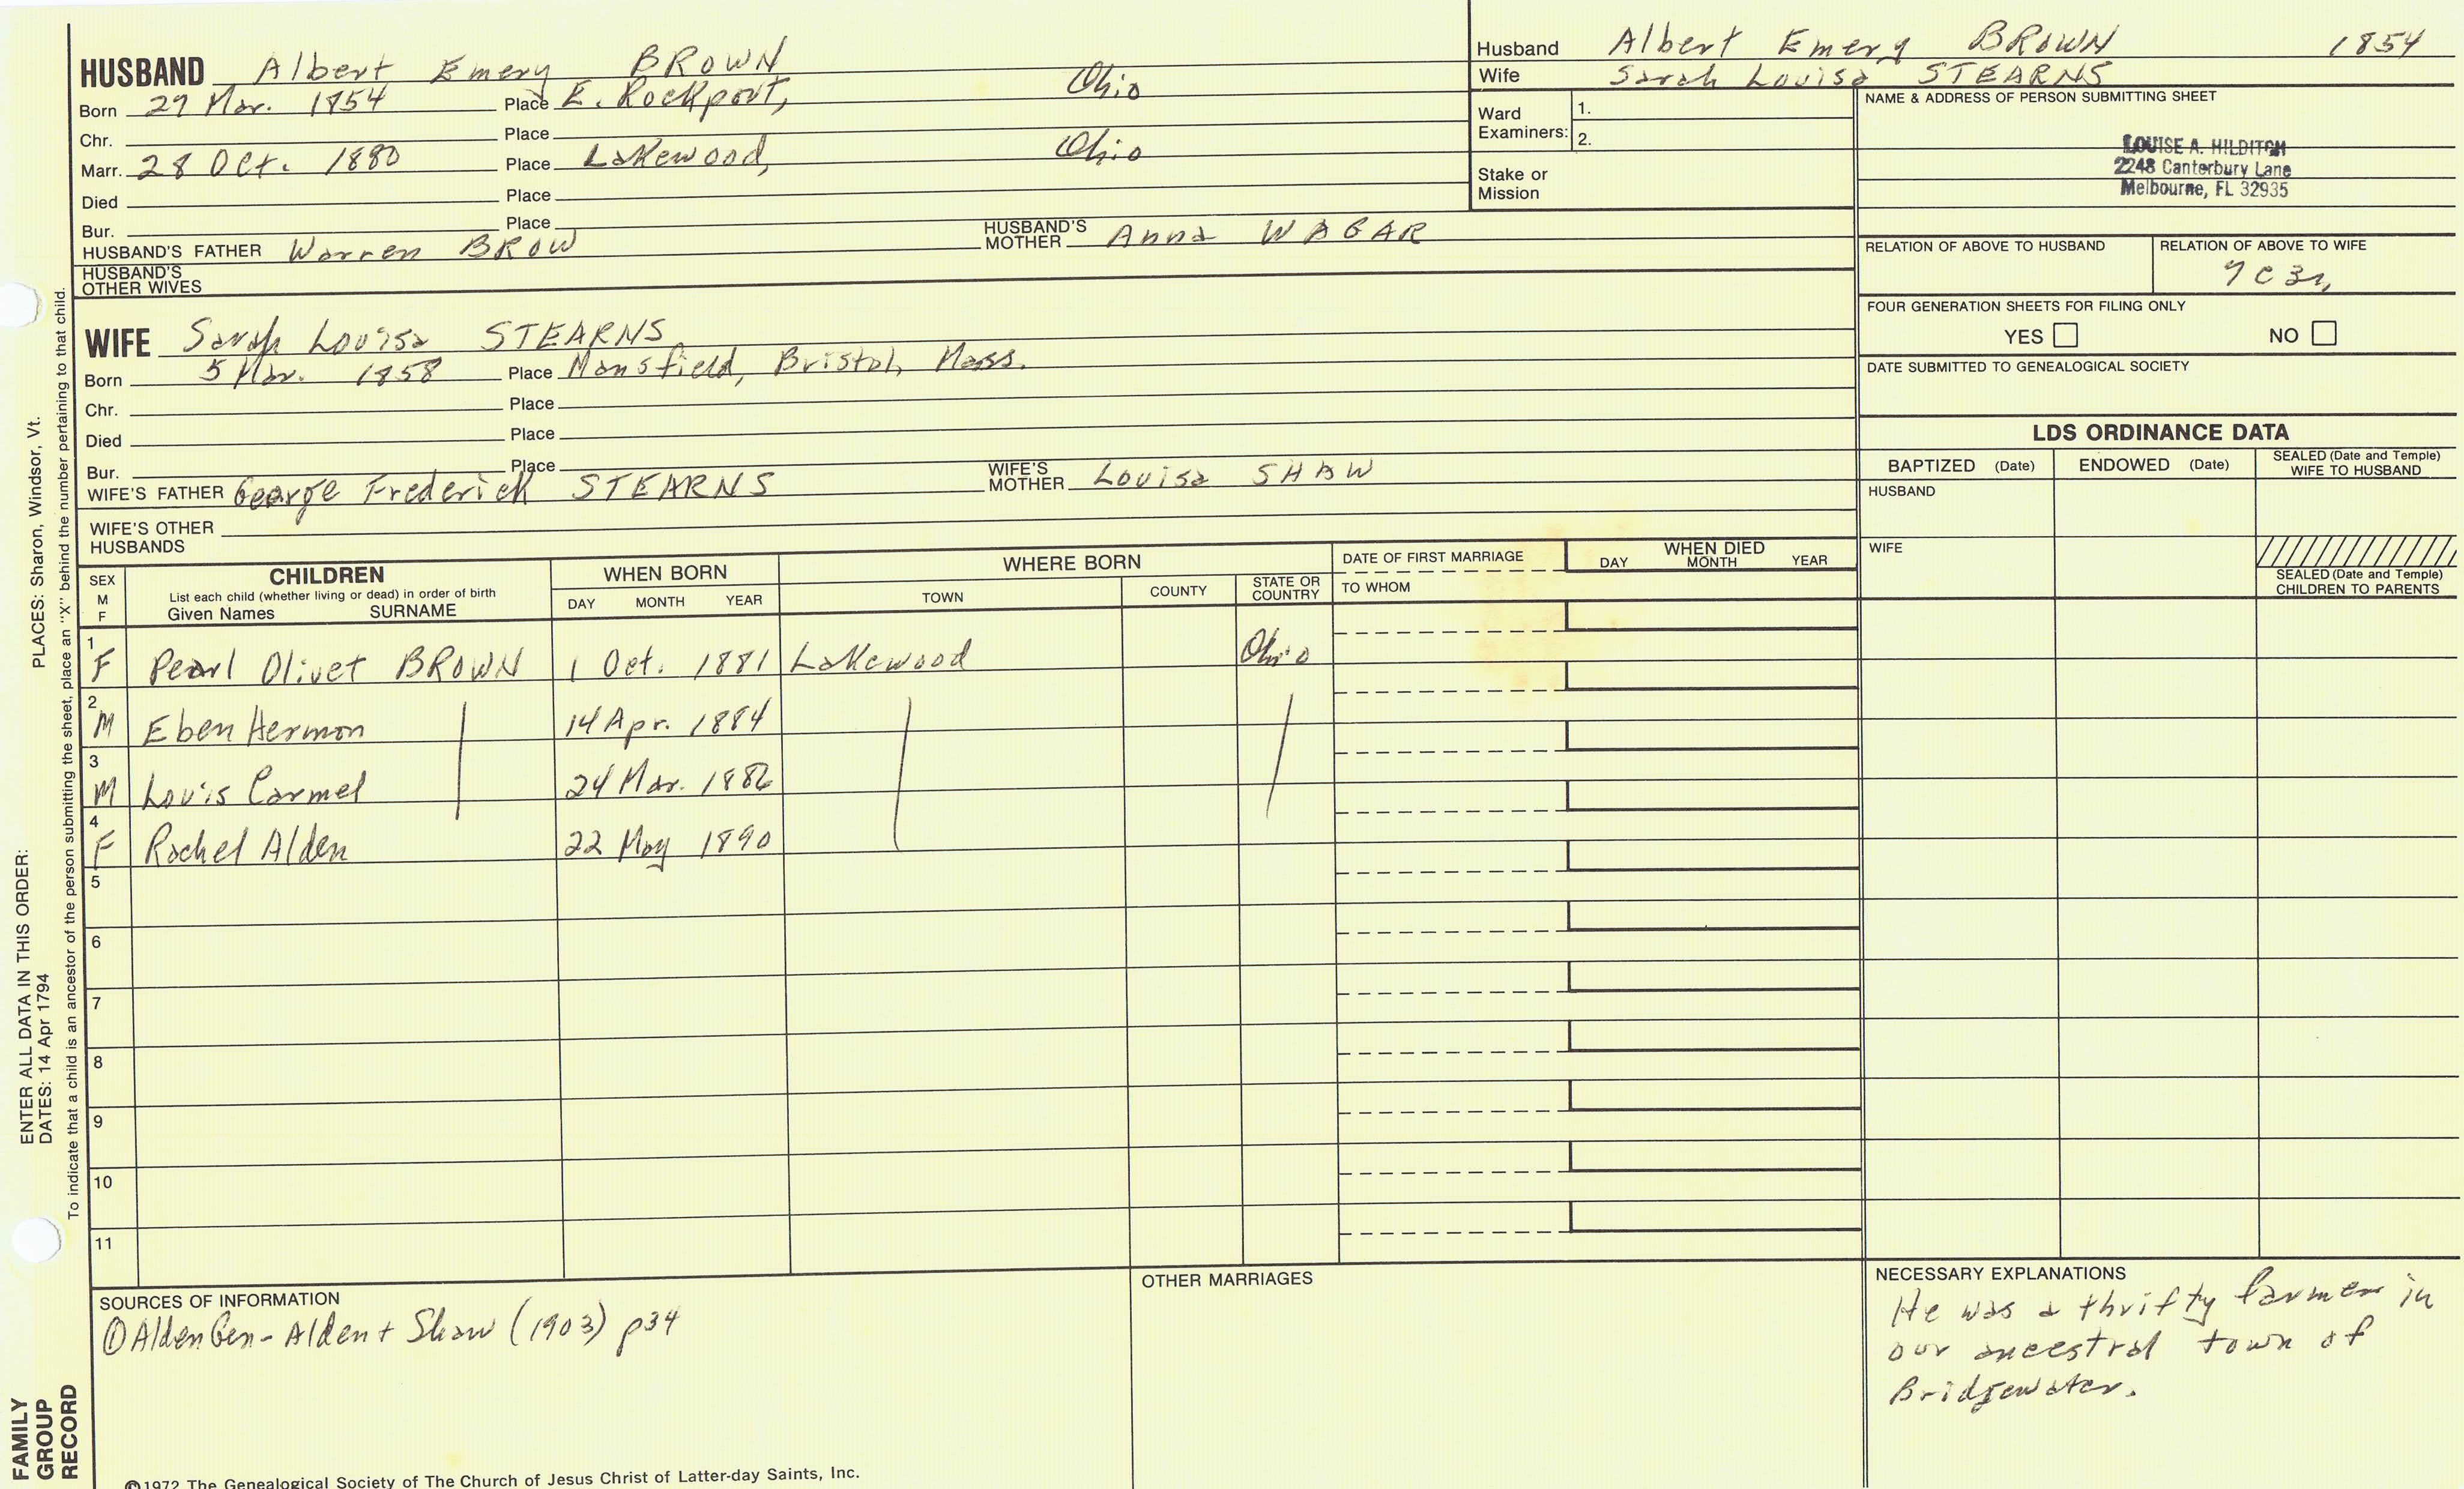 HUSBAND Albert Emery BROWN
Born 29 Mar. 1854 Place E. Rockport, Ohio
Chr. Place
Marr. 28 Oct. 1880 Place Lakewood, Ohio
Died Place
Bur. Place
HUSBAND'S FATHER Warren BROW HUSBAND'S MOTHER Anna WAGAR
HUSBAND'S OTHER WIVES
Husband Albert Emery BROWN 1854
Wife Sarah Louisa STEARNS
Ward Examiners: 1.
2.
Stake or Mission
NAME & ADDRESS OF PERSON SUBMITTING SHEET
LOUISE A. HILDITCH
2248 Canterbury Lane
Melbourne, FL 32935
RELATION OF ABOVE TO HUSBAND RELATION OF ABOVE TO WIFE
7C3r,
FOUR GENERATION SHEETS FOR FILING ONLY
YES NO
DATE SUBMITTED TO GENEALOGICAL SOCIETY
WIFE Sarah Louisa STEARNS
Born 5 Mar. 1858 Place Mansfield, Bristol, Mass.
Chr. Place
Died Place
Bur. Place
WIFE'S FATHER George Frederick STEARNS WIFE'S MOTHER Louisa SHAW
WIFE'S OTHER HUSBANDS
LDS ORDINANCE DATA
BAPTIZED (Date) ENDOWED (Date) SEALED (Date and Temple) WIFE TO HUSBAND
HUSBAND
WIFE
SEALED (Date and Temple) CHILDREN TO PARENTS
SEX M F CHILDREN WHEN BORN WHERE BORN DATE OF FIRST MARRIAGE WHEN DIED
List each child (whether living or dead) in order of birth
Given Names SURNAME DAY MONTH YEAR TOWN COUNTY STATE OR COUNTRY TO WHOM DAY MONTH YEAR
1 F Pearl Olivet BROWN 1 Oct. 1881 Lakewood Ohio
2 M Eben Hermon 14 Apr. 1884
3 M Louis Carmel 24 Mar. 1886
4 F Rachel Alden 22 May 1890
5
6
7
8
9
10
11
SOURCES OF INFORMATION
① Alden Gen - Alden + Shaw (1903) p34
OTHER MARRIAGES
NECESSARY EXPLANATIONS
He was a thrifty farmer in
our ancestral town of
Bridgewater.
©1972 The Genealogical Society of The Church of Jesus Christ of Latter-day Saints, Inc.
FAMILY GROUP RECORD
ENTER ALL DATA IN THIS ORDER:
DATES: 14 Apr 1794 PLACES: Sharon, Windsor, Vt.
To indicate that a child is an ancestor of the person submitting the sheet, place an "X" behind the number pertaining to that child.